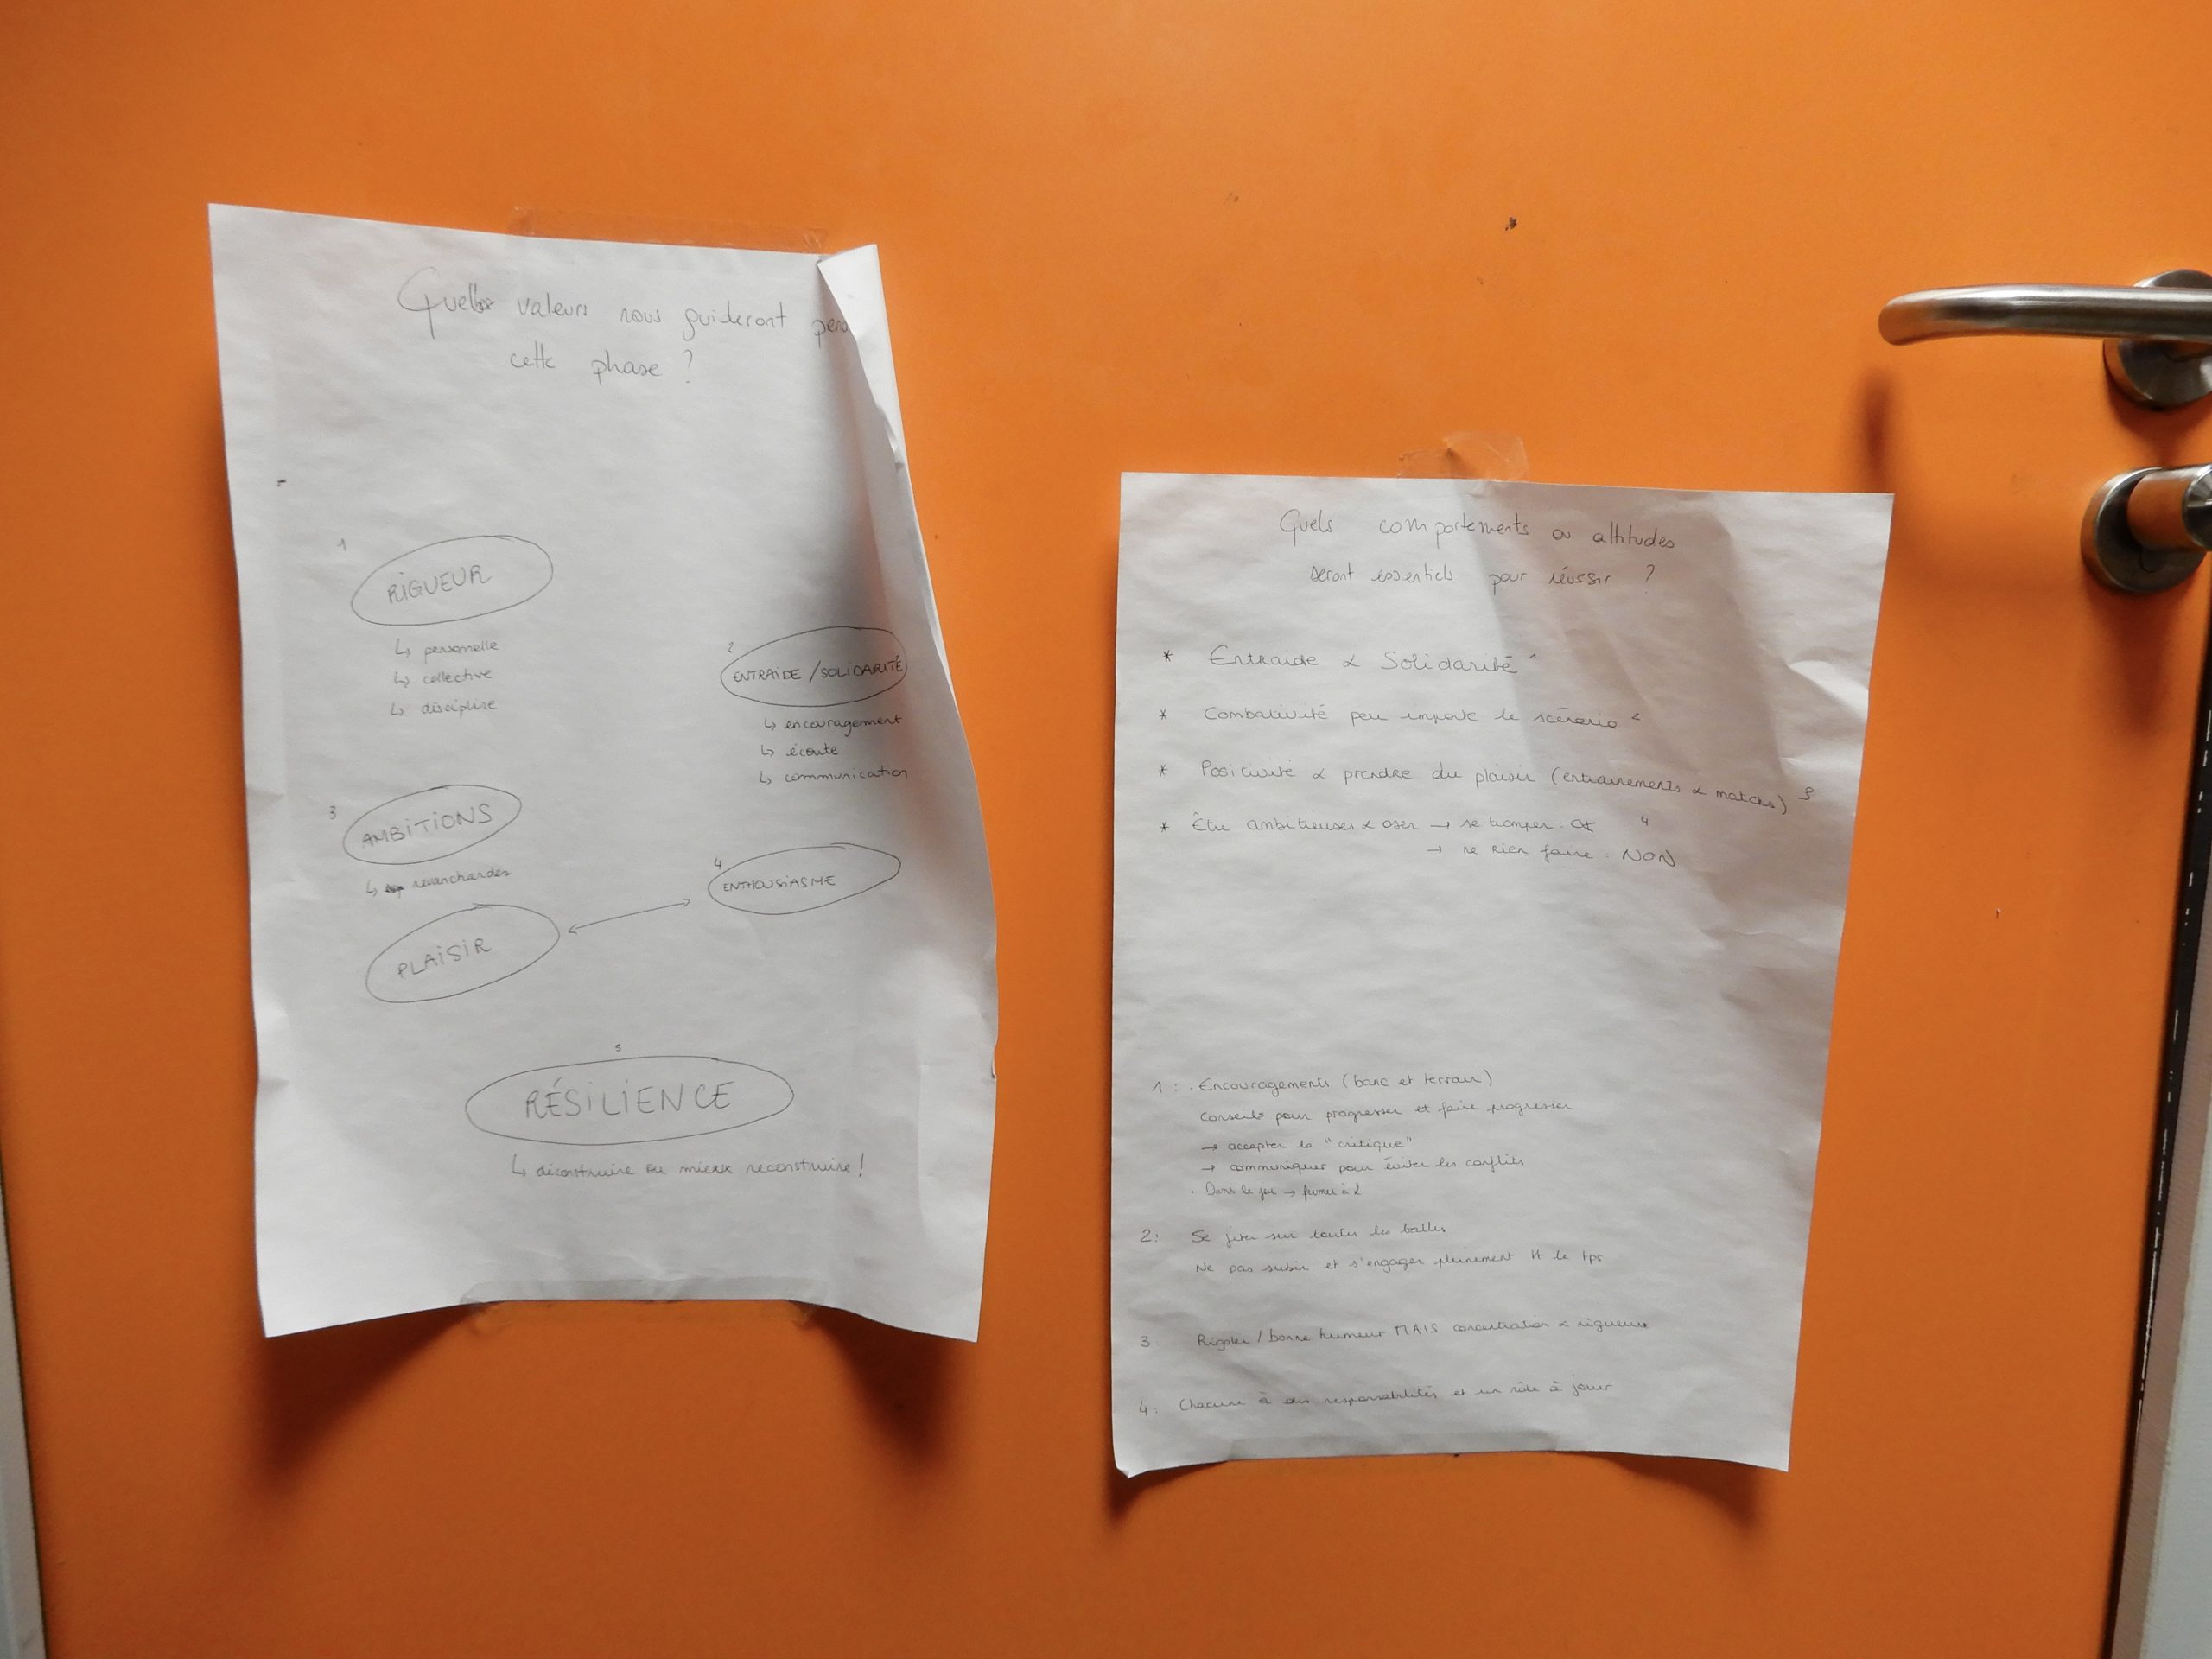 Quelles valeurs nous guideront
cette phase ?
1
RIGUEUR
↳ personnelle
↳ collective
↳ discipline
2
ENTRAIDE / SOLIDARITÉ
↳ encouragement
↳ écoute
↳ communication
3
AMBITIONS
↳ revanchardes
4
ENTHOUSIASME
PLAISIR
5
RÉSILIENCE
↳ déconstruire ou mieux reconstruire !
Quels comportements ou attitudes
seront essentiels pour réussir ?
* Entraide & Solidarité 1
* Combativité peu importe le scénario 2
* Positivité & prendre du plaisir (entrainements & matchs) 3
* Être ambitieuses & oser → se tromper : OK 4
→ ne rien faire : NON
1 : . Encouragements (banc et terrain)
Conseils pour progresser et faire progresser
→ accepter la "critique"
→ communiquer pour éviter les conflits
. Dans le jeu → fermer à 2
2 : Se jeter sur toutes les balles
Ne pas subir et s'engager pleinement tt le tps
3 Rigoler / bonne humeur MAIS concentration & rigueur
4 : Chacune à des responsabilités et un rôle à jouer